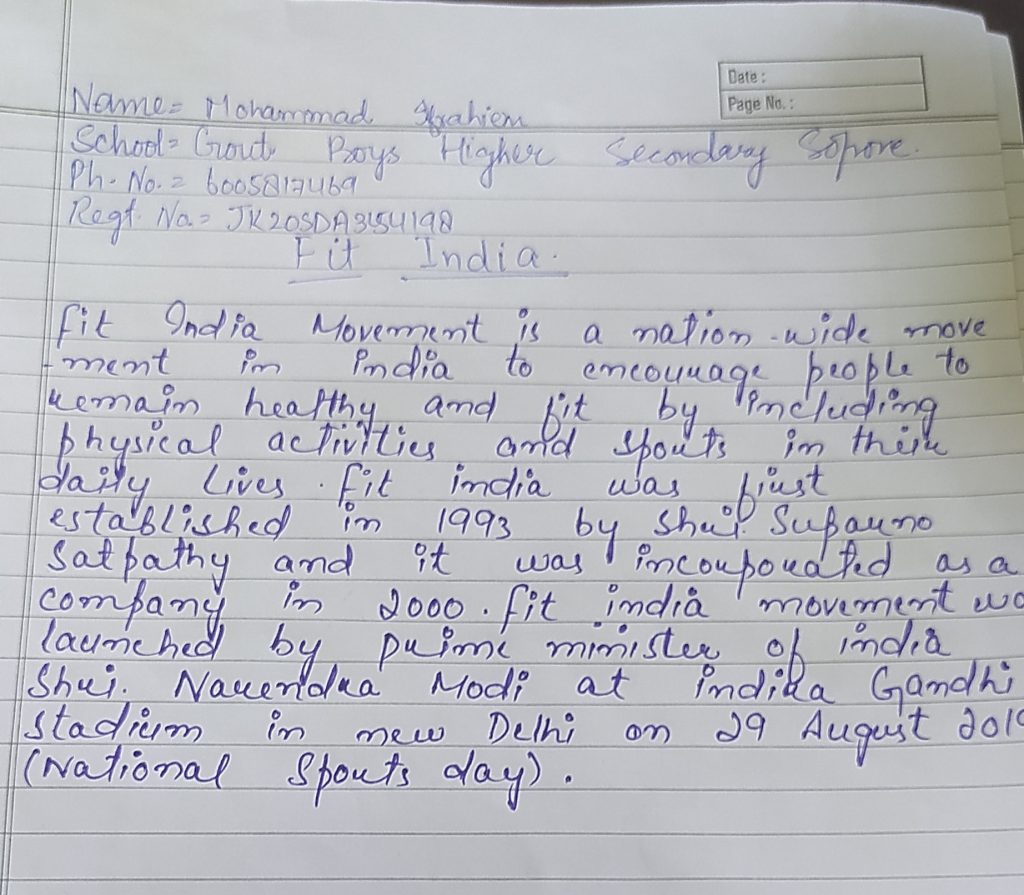 Date :
Page No. :
Name = Mohammad Ibrahiem
School = Govt. Boys Higher Secondary Sopore.
Ph. No. = 6005817469
Regt. No. = JK20SDA3154198
Fit India.
Fit India Movement is a nation-wide move
-ment in india to encourage people to
remain healthy and fit by including
physical activities and sports in their
daily lives. Fit india was first
established in 1993 by Shri. Suparno
Satpathy and it was incorporated as a
company in 2000. Fit india movement
launched by prime minister of india
Shri. Narendra Modi at indira Gandhi
stadium in new Delhi on 29 August 2019
(National Sports day).